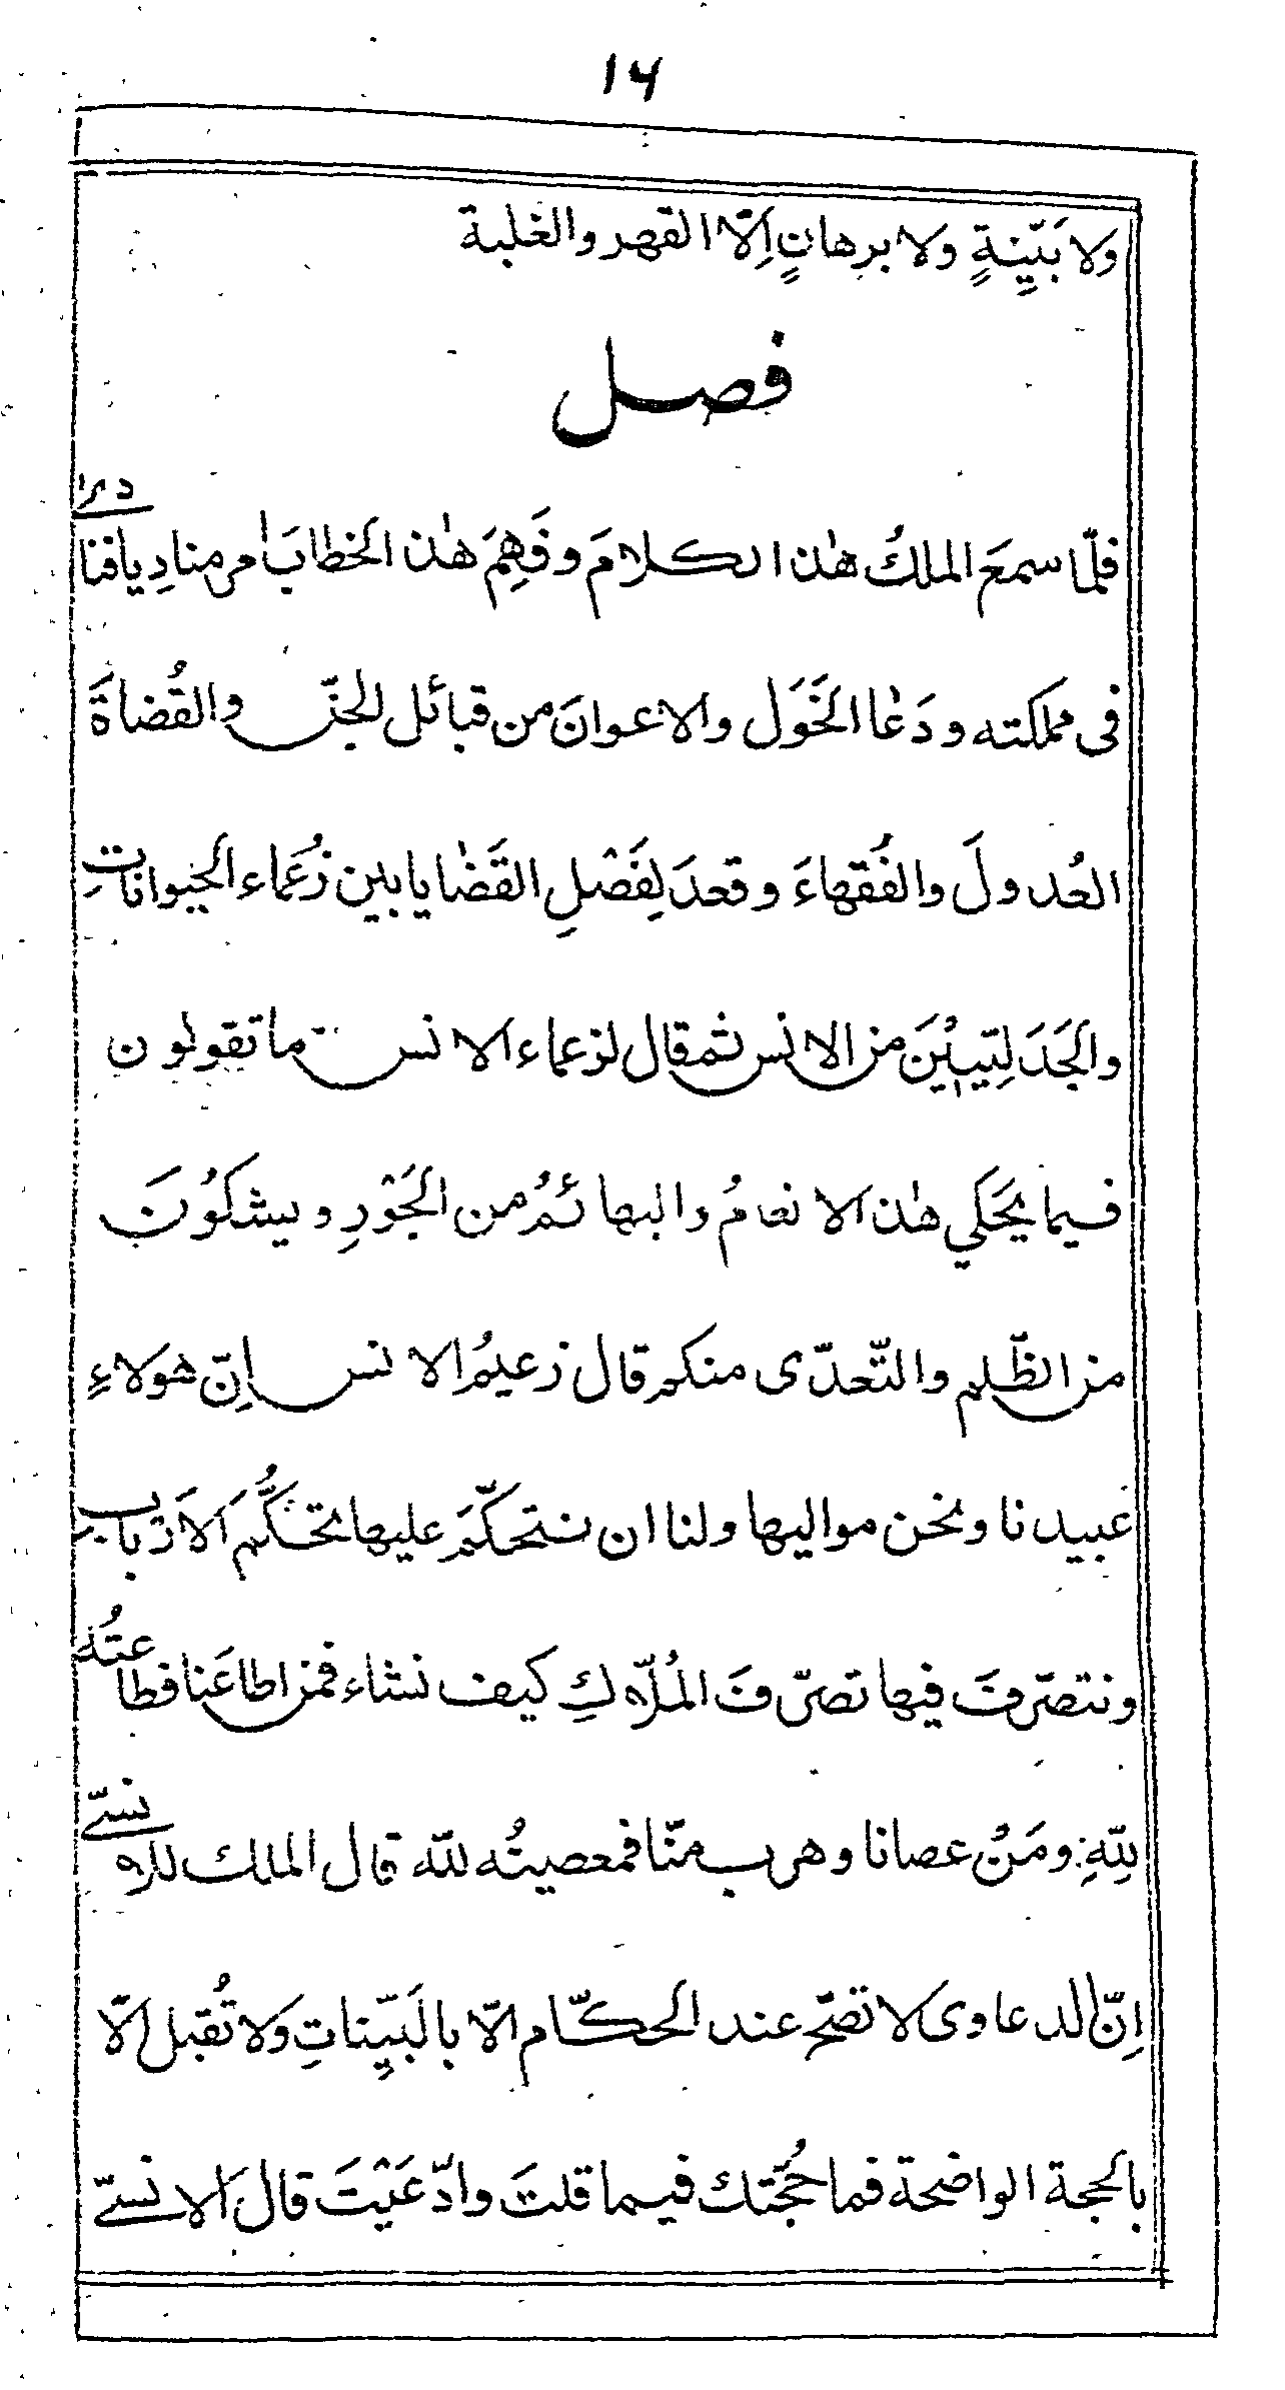 ۱۴
ولا بَيِّنةٍ ولا برهانٍ اِلّا القهر والغلبة
فصل
فلمّا سمعَ الملكُ هٰذا الكلامَ وفَهِمَ هٰذا الخطابَ امر مناديا فنادىٰ
فى مملكته ودَعٰا الخَوَل والاعوانَ من قبائل الجنّ والقُضاةَ
العُدولَ والفُقهاءَ وقعدَ لِفَصْلِ القَضٰايا بين زُعَماء الحيوانات
والجَدَليّيْنَ من الانس ثم قال لزعماء الانس ما تقولون
فيما يَحكي هٰذه الانعامُ والبهائمُ من الجَوْرِ ويشكُونَ
من الظّلم والتّعدّى منكم قال زعيمُ الانس اِنّ هولاءِ
عبيدنا ونحن مواليها ولنا ان نتحكّمَ عليها تحكُّم الاَرباب
ونتصرّفَ فيها تصرّفَ المُلّاكِ كيف نشاء فمن اطاعَنا فطاعتُه
لِلّهِ ومَنْ عصانا وهرب منّا فمعصيتُه للّه قال الملك للانسىّ
اِنّ الدعاوى لا تصحّ عند الحكّام الّا بالبَيِّناتِ ولا تُقبل الّا
بالحجة الواضحة فما حُجّتك فيما قلتَ وادّعَيْتَ قال الانسىّ